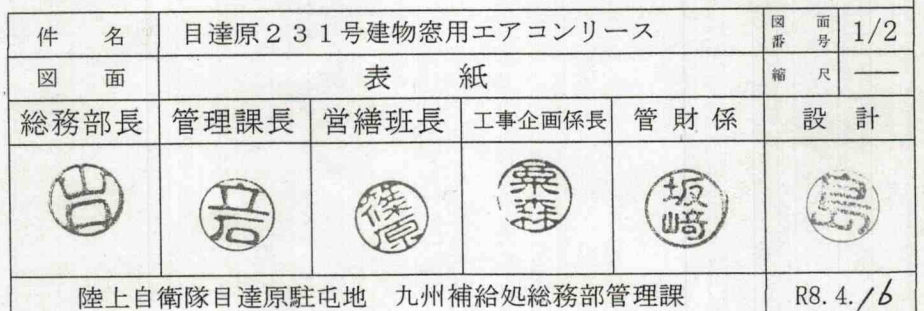 件名 目達原231号建物窓用エアコンリース 図面番号 1/2
図面 表紙 縮尺 ―
総務部長 管理課長 営繕班長 工事企画係長 管財係 設計
山口 岩 篠原 粟森 坂﨑 島
陸上自衛隊目達原駐屯地 九州補給処総務部管理課 R8.4.16